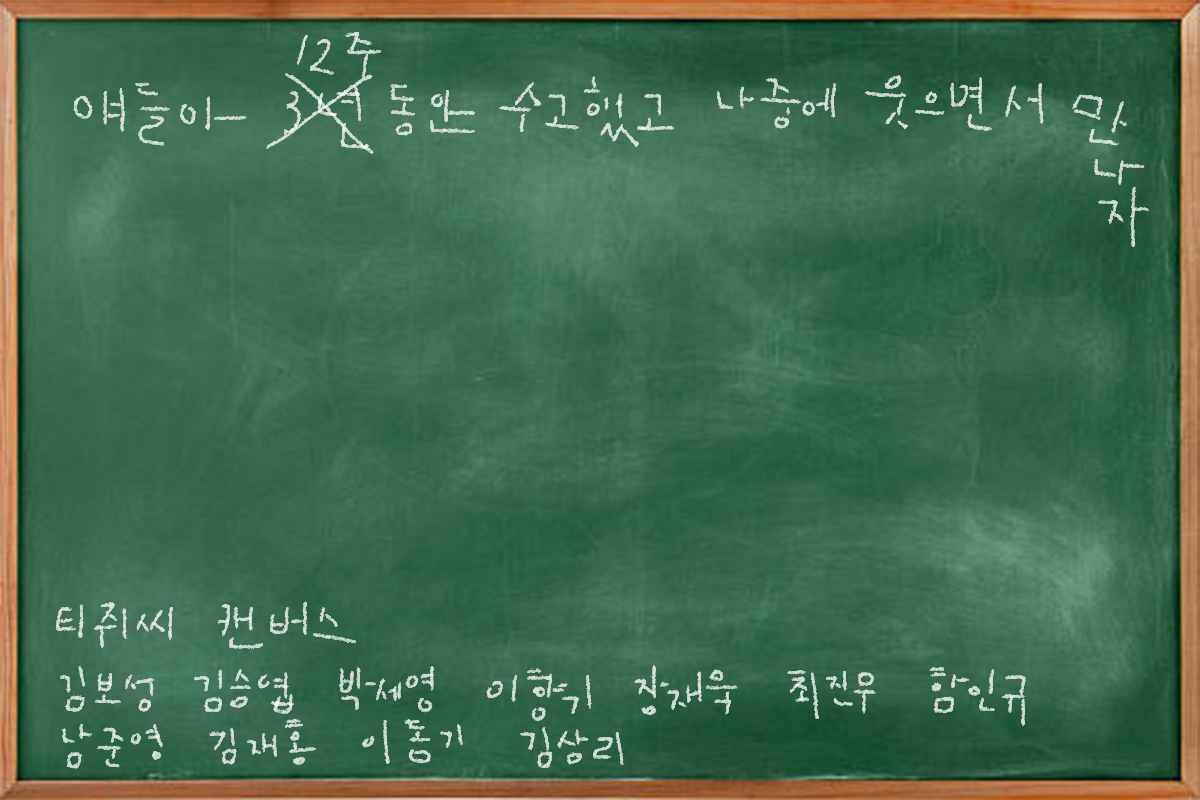 얘들아 12주 동안 수고했고 나중에 웃으면서 만나자
티쥐씨 캔버스
김보성 김승엽 박세영 이형기 장재욱 최진우 함인규
남준영 김재홍 이동기 김상리